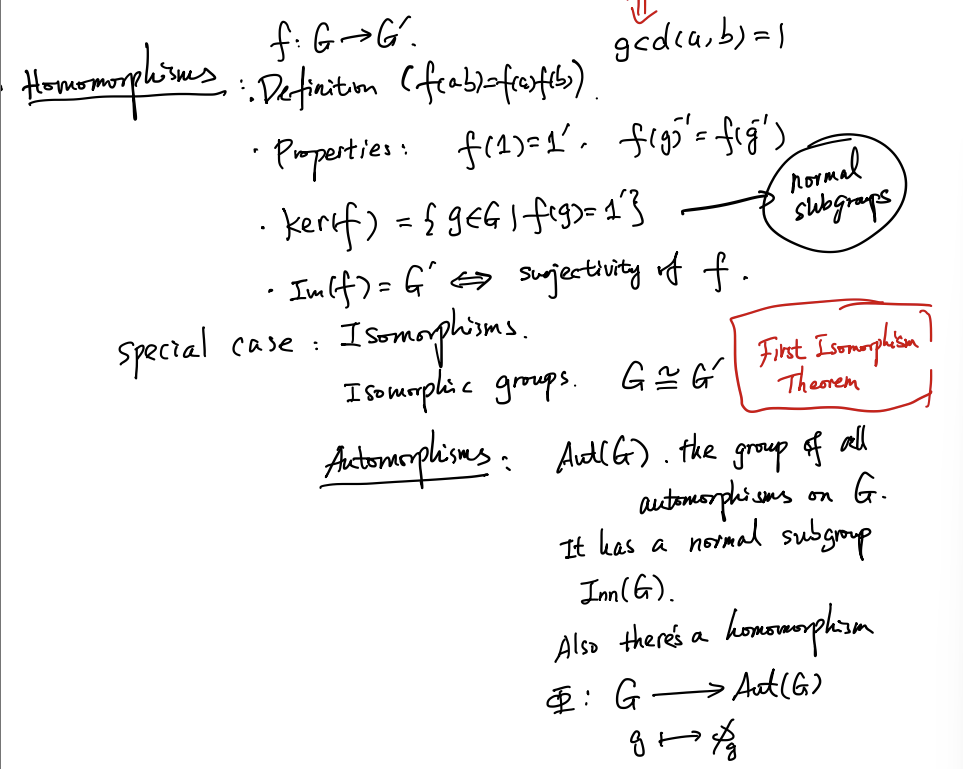 ⇓
f: G → G′.
gcd(a,b)=1
Homomorphisms : · Definition (f(ab)=f(a)f(b)).
· Properties: f(1)=1′. f(g)⁻¹=f(g⁻¹)
· ker(f) = { g∈G | f(g)=1′} → normal subgroups
· Im(f)=G′ ⇔ surjectivity of f.
special case : Isomorphisms.
Isomorphic groups. G ≅ G′
First Isomorphism
Theorem
Automorphisms : Aut(G). the group of all
automorphisms on G.
It has a normal subgroup
Inn(G).
Also there's a homomorphism
Φ: G ⟶ Aut(G)
g ⟼ ϕ_g